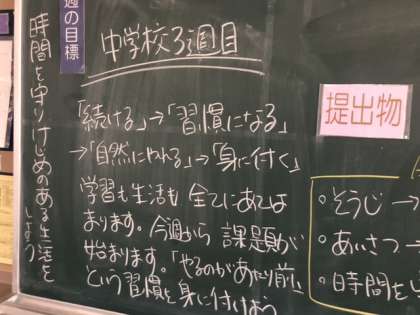 週の目標
時間を守りけじめのある生活をしよう
中学校3週目
「続ける」→「習慣になる」
→「自然にやれる」→「身に付く」
学習も生活も全てにあては
まります。今週から課題が
始まります。「やるのがあたり前」
という習慣を身に付けよう
提出物
・そうじ→
・あいさつ→
・時間を